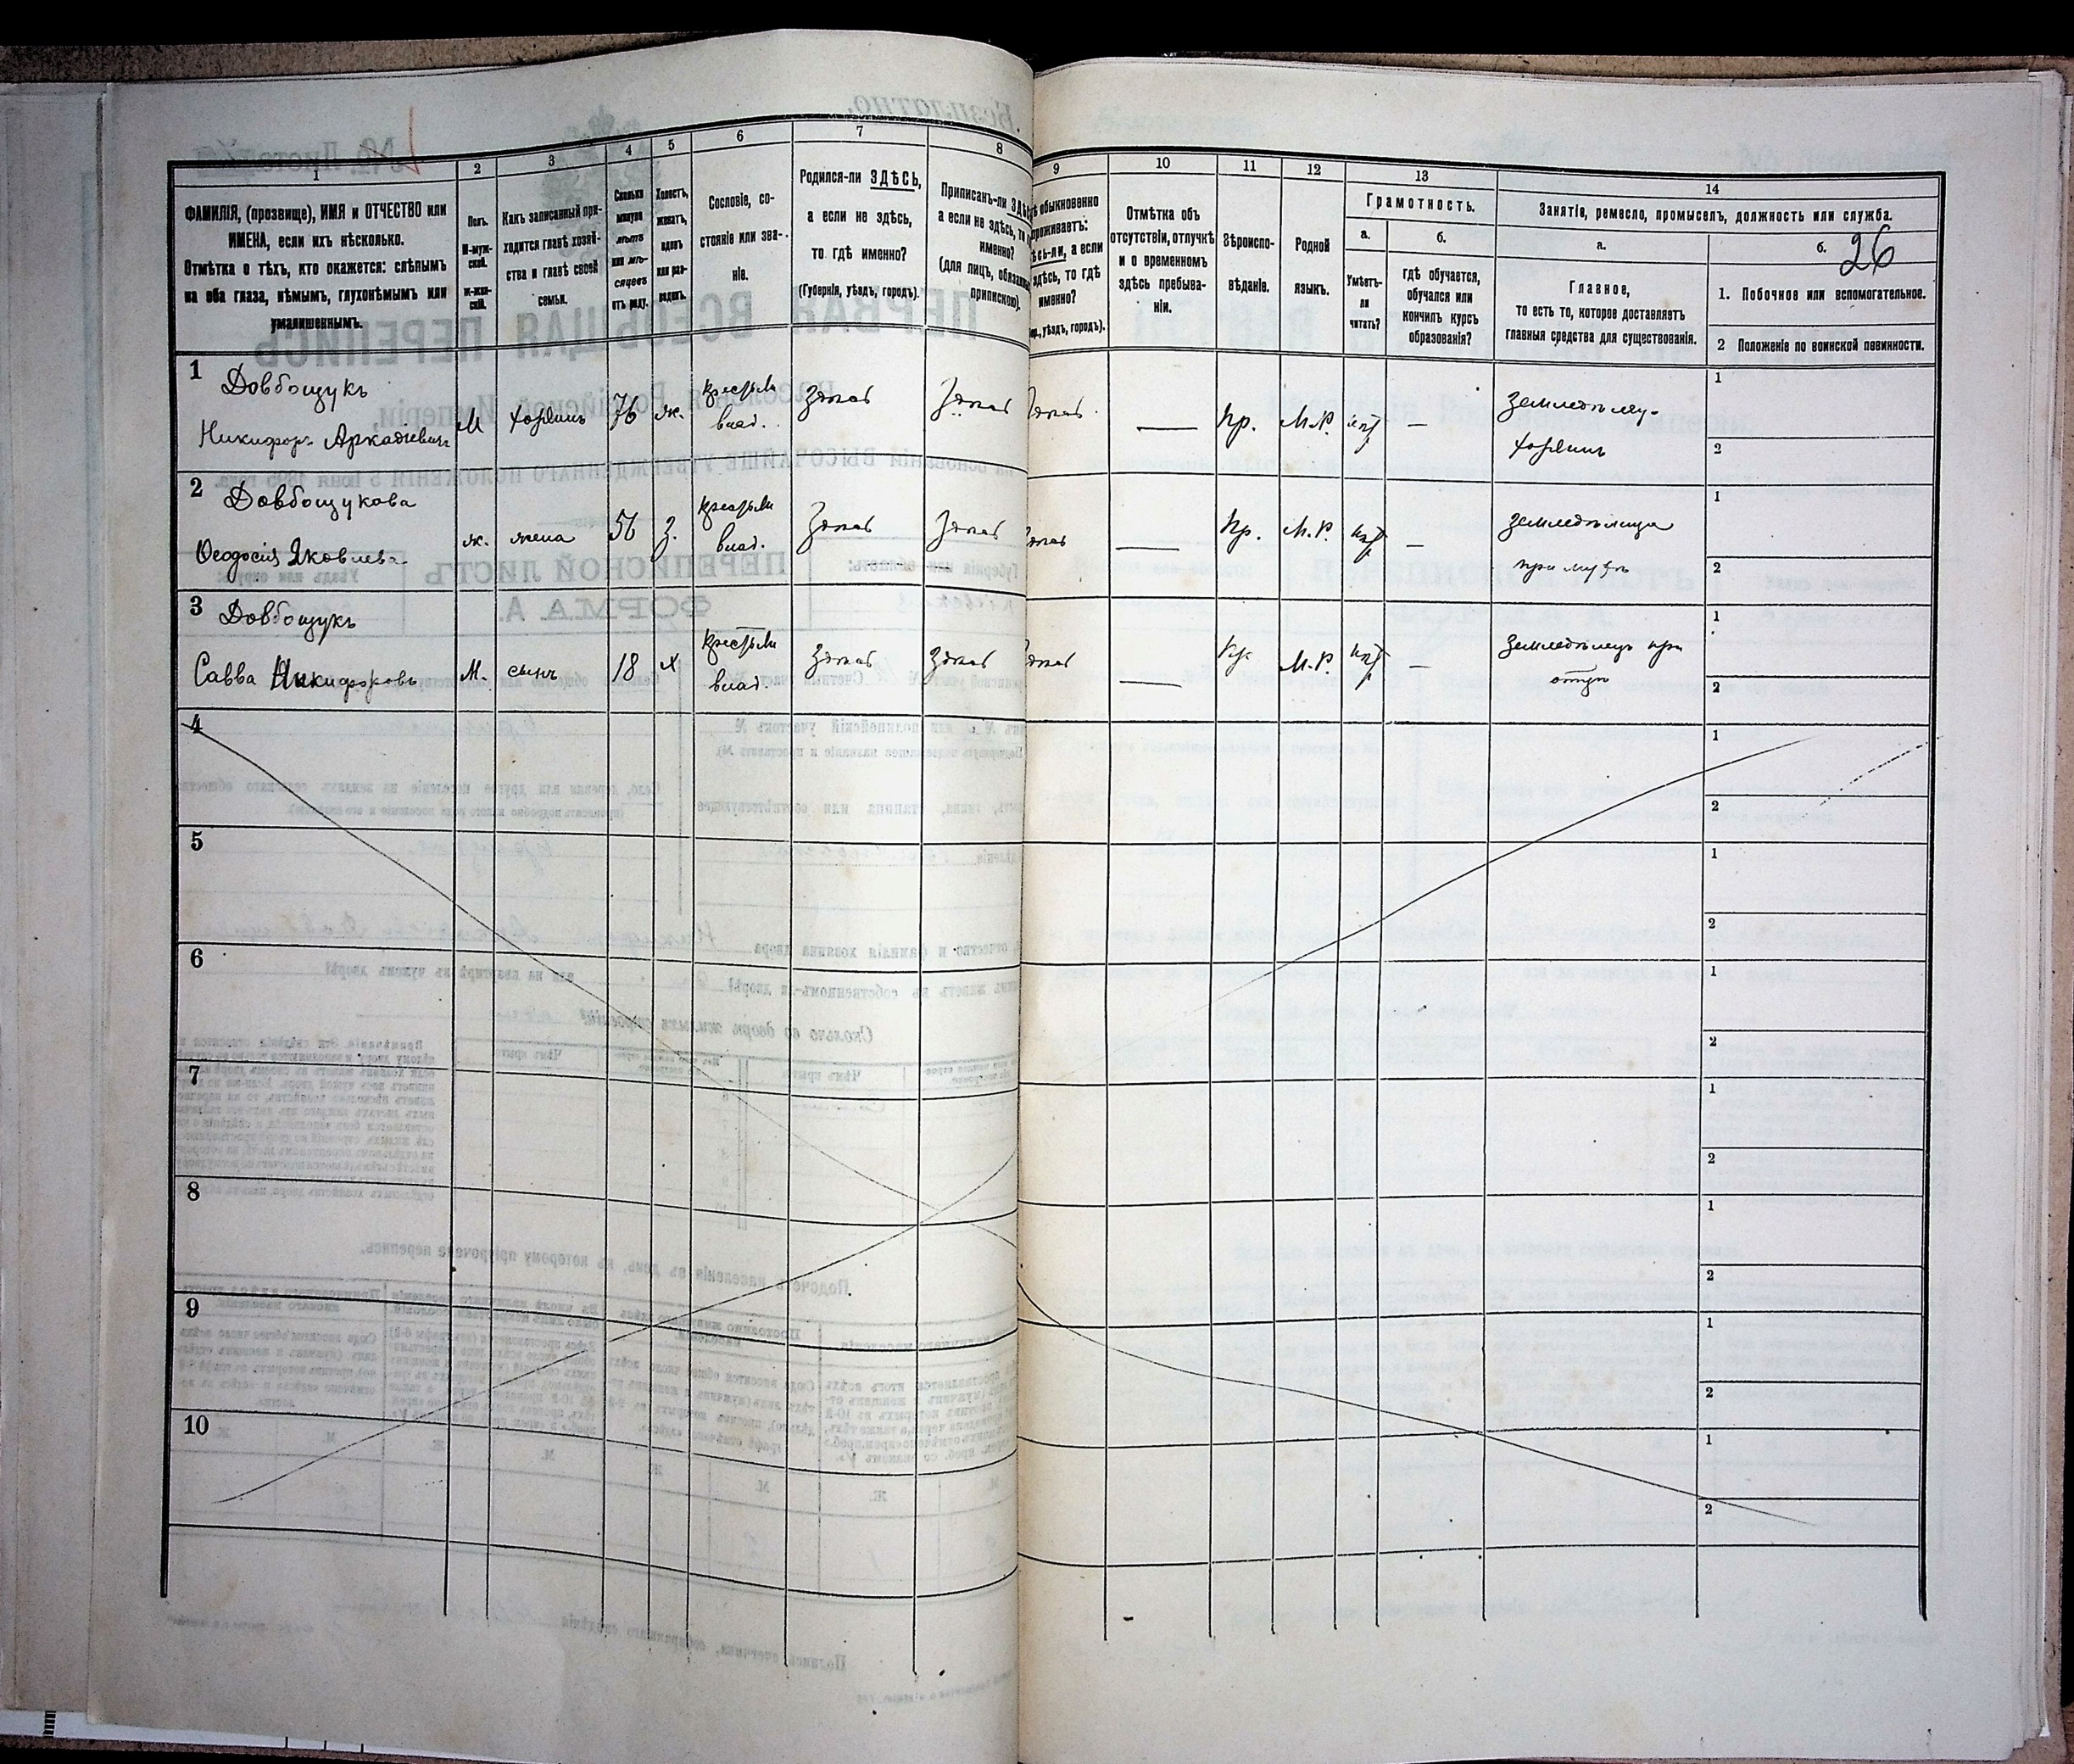 1
ФАМИЛІЯ, (прозвище), ИМЯ и ОТЧЕСТВО или
ИМЕНА, если ихъ нѣсколько.
Отмѣтка о тѣхъ, кто окажется: слѣпымъ
на оба глаза, нѣмымъ, глухонѣмымъ или
умалишеннымъ.
2
Полъ.
М-муж-
ской.
Ж-жен-
скій.
3
Какъ записанный при-
ходится главѣ хозяй-
ства и главѣ своей
семьи.
4
Сколько
минуло
лѣтъ
или мѣ-
сяцевъ
отъ роду.
5
Холостъ,
женатъ,
вдовъ
или раз-
веденъ.
6
Сословіе, со-
стояніе или зва-
ніе.
7
Родился-ли ЗДѢСЬ,
а если не здѣсь,
то гдѣ именно?
(Губернія, уѣздъ, городъ).
8
Приписанъ-ли
а если не здѣсь, то
именно?
(для лицъ,
припискою).
9
обыкновенно
проживаетъ:
а если
здѣсь, то гдѣ
именно?
уѣздъ, городъ).
10
Отмѣтка объ
отсутствіи, отлучкѣ
и о временномъ
здѣсь пребыва-
ніи.
11
Вѣроиспо-
вѣданіе.
12
Родной
языкъ.
13
Грамотность.
а.
Умѣетъ-
ли
читать?
б.
гдѣ обучается,
обучался или
кончилъ курсъ
образованія?
14
Занятіе, ремесло, промыселъ, должность или служба.
а.
Главное,
то есть то, которое доставляетъ
главныя средства для существованія.
б.
26
1. Побочное или вспомогательное.
2 Положеніе по воинской повинности.
1
Довбощукъ
Никифоръ Аркадіевичъ
М
хозяинъ
76
ж.
влад.
Здѣсь
Здѣсь
пр.
М.Р.
—
хозяинъ
1
2
2
Довбощукова
Ѳеодосія Яковлева
ж.
жена
56
з.
влад.
Здѣсь
Здѣсь
пр.
М.Р.
—
при мужѣ
1
2
3
Довбощукъ
Савва Никифоровъ
М.
сынъ
18
х
влад.
Здѣсь
Здѣсь
М.Р
—
Земледѣлецъ при
отцѣ
1
2
4
1
2
5
1
2
6
1
2
7
1
2
8
1
2
9
1
2
10
1
2